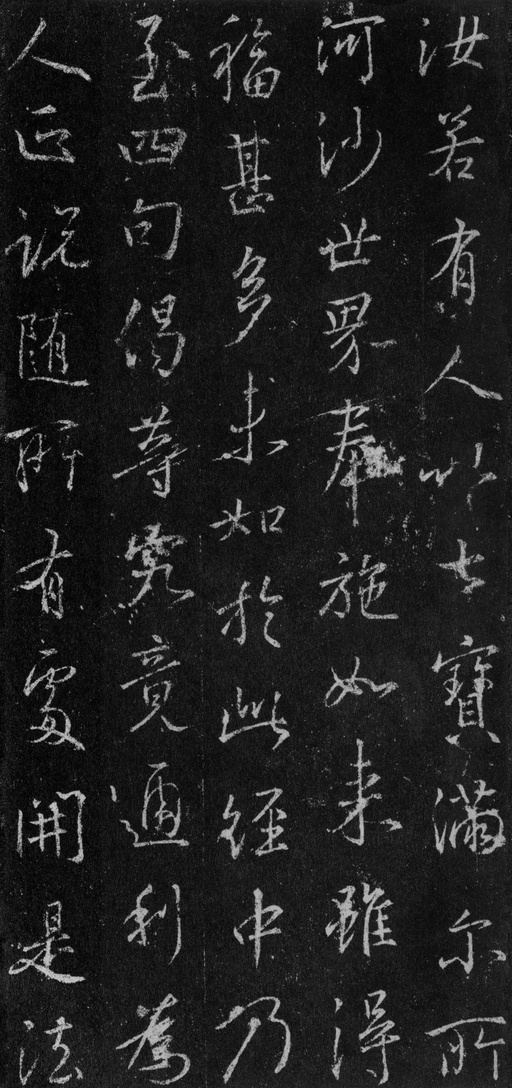 汝若有人以七寶滿尔所
河沙世界奉施如来雖得
福甚多未如於此經中乃
至四句偈等究竟通利為
人正説随所有處開是法